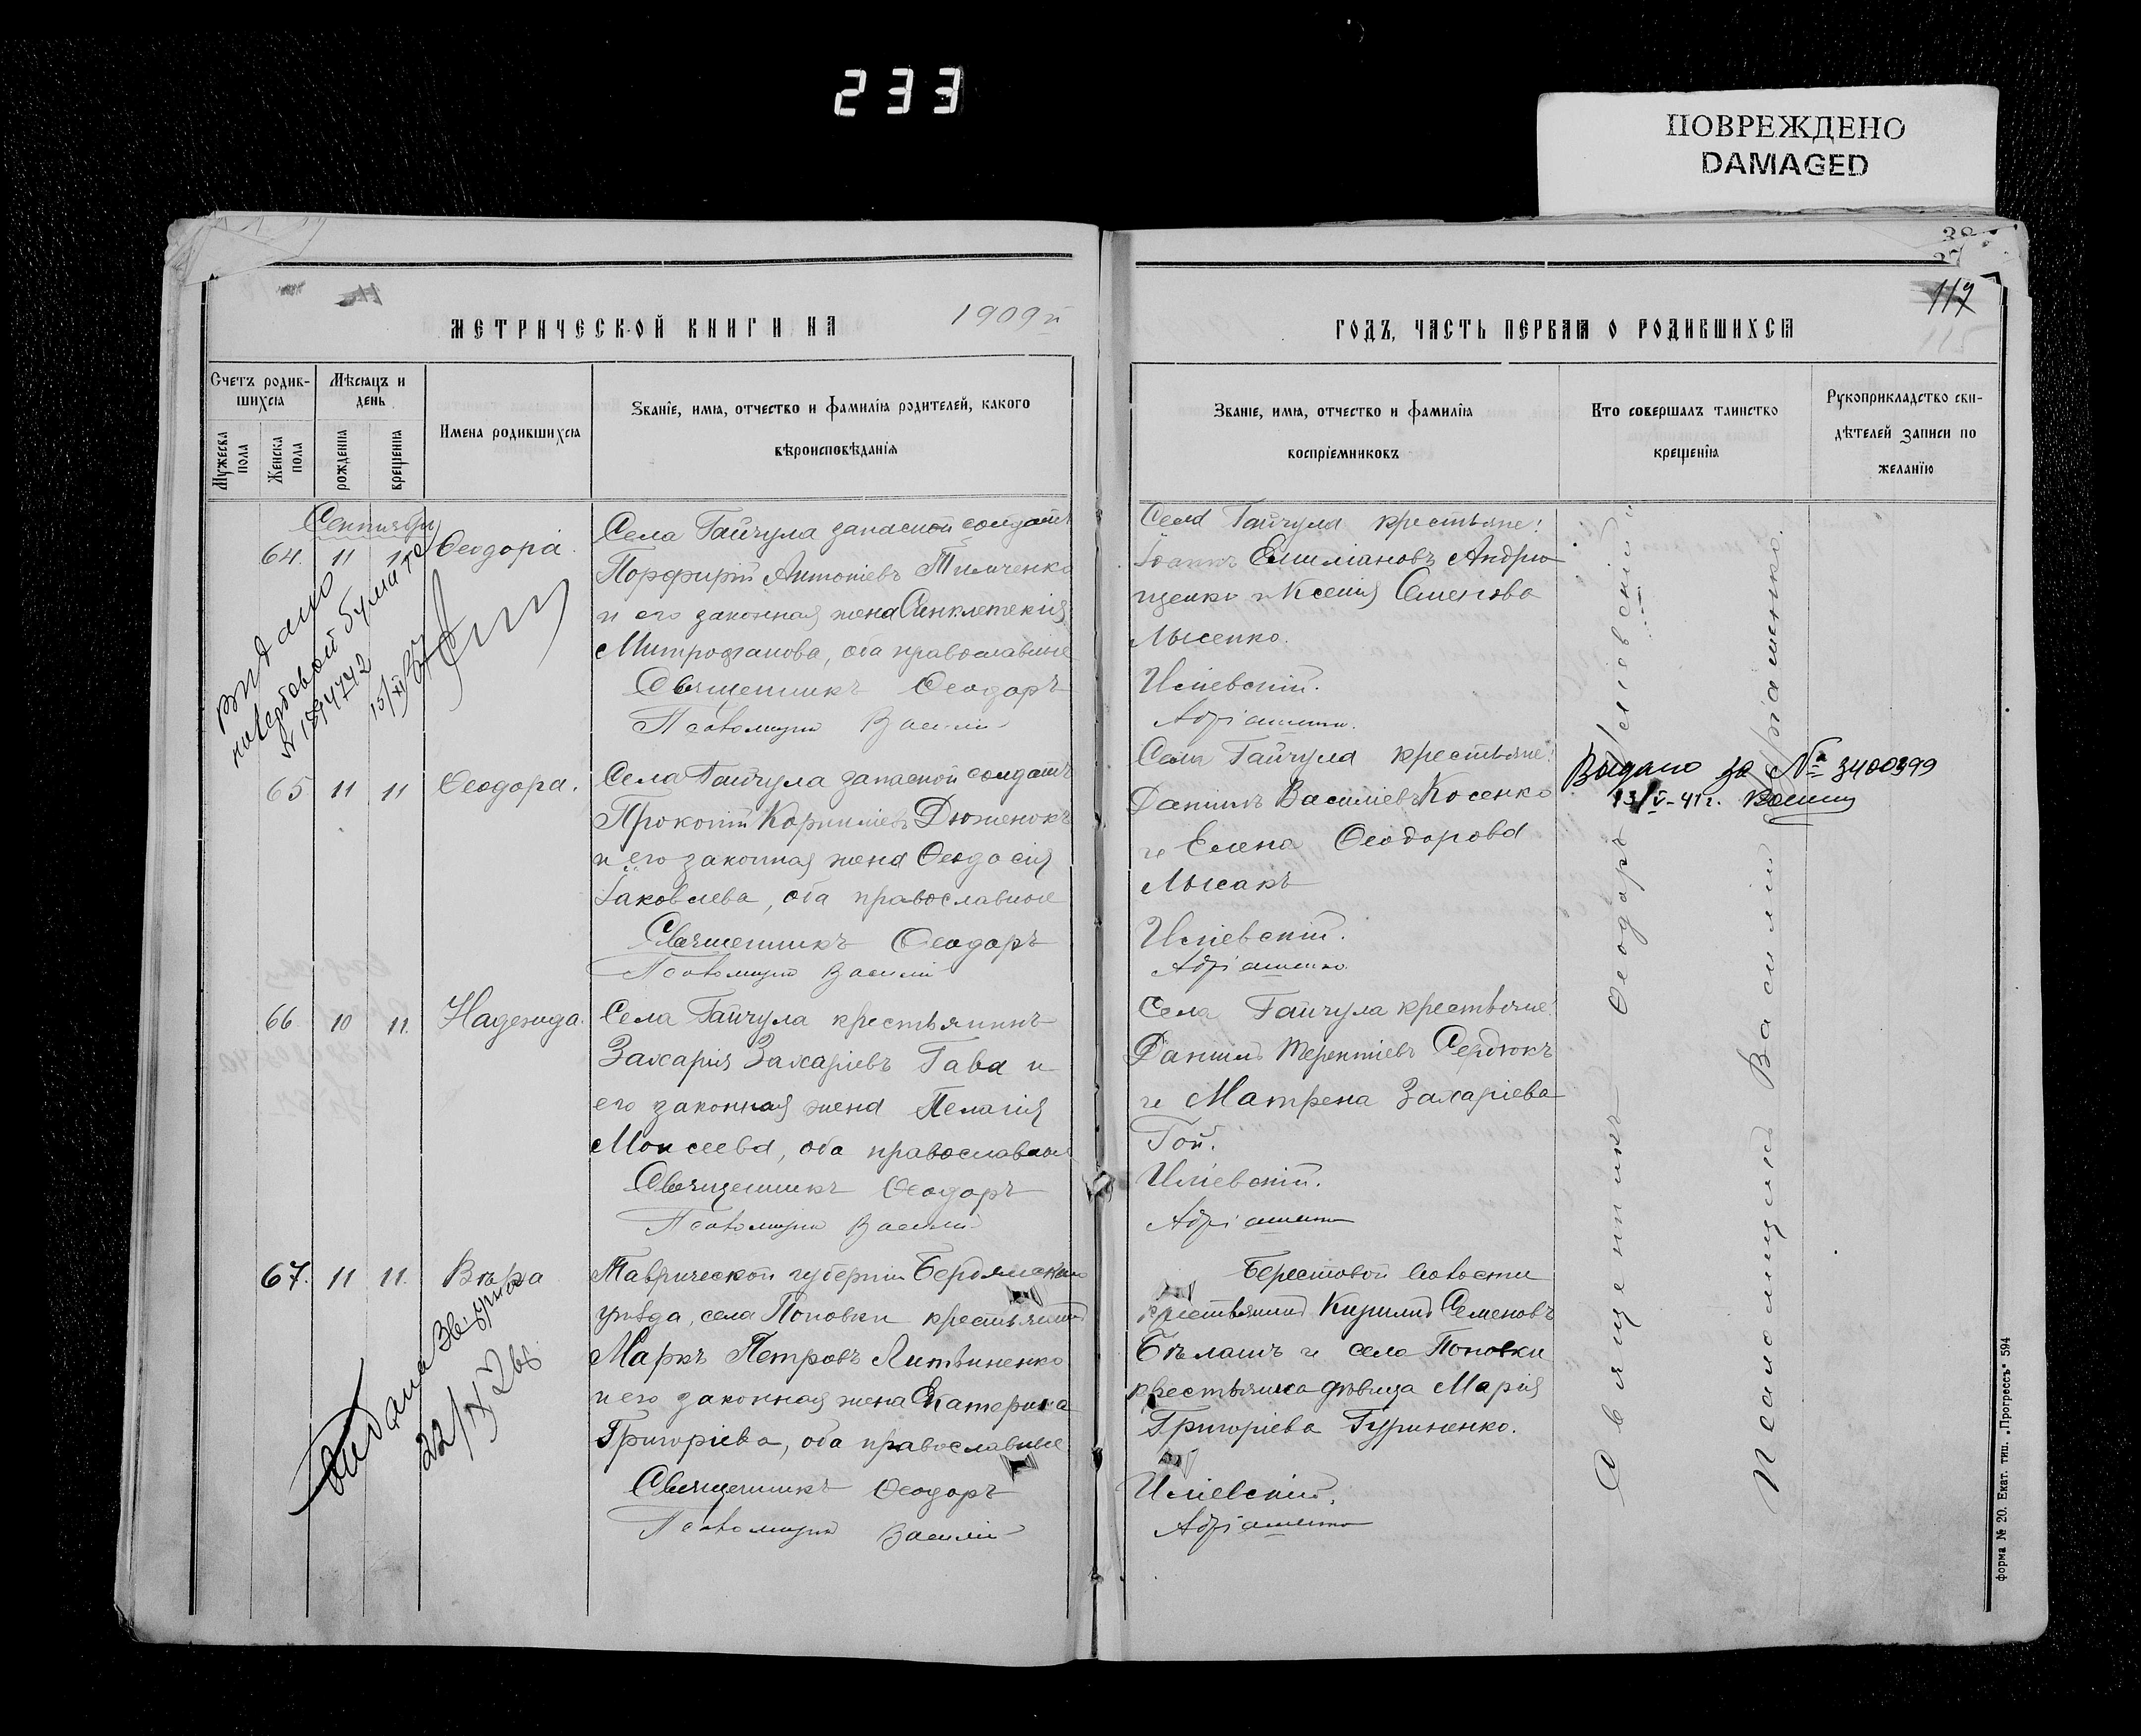 233
ПОВРЕЖДЕНО
DAMAGED
117
МЕТРИЧЕСКОЙ КНИГИ НА 1909й
Счетъ родив-
шихся
Мѣсяцъ и
день
Имена родившихся
Званіе, имя, отчество и фамилія родителей, какого
вѣроисповѣданія
Мужеска пола
Женска пола
рожденія
крещенія
Сентября
64. 11 11 Ѳеодора.
Села Гайчула запасной солдатъ
Порфирій Антоніевъ Тимченко
и его законная жена Синклетекія
Митрофанова, оба православные
Священникъ Ѳеодоръ
Псаломщикъ Василій
видано
15/XI
65 11 11 Ѳеодора.
Села Гайчула запасной солдатъ
Прокопій Корниліевъ Дюженокъ
и его законная жена Ѳеодосія
Іаковлева, оба православные
Священникъ Ѳеодоръ
Псаломщикъ Василій
66 10 11. Надежда.
Села Гайчула крестьянинъ
Захарія Захаріевъ Гава и
его законная жена Пелагія
Моисеева, оба православные
Священникъ Ѳеодоръ
Псаломщикъ Василій
67. 11 11. Вѣра
Таврической губерніи Бердянскаго
уѣзда, села Поповки крестьянинъ
Маркъ Петровъ Литвиненко
и его законная жена Екатерина
Григоріева, оба православные
Священникъ Ѳеодоръ
Псаломщикъ Василій
видана
ГОДЪ, ЧАСТЬ ПЕРВАЯ О РОДИВШИХСЯ
Званіе, имя, отчество и фамилія
воспріемниковъ
Кто совершалъ таинство
крещенія
Рукоприкладство сви-
дѣтелей записи по
желанію
Села Гайчула крестьяне:
Іоаннъ Емиліановъ Андрю
щенко и Ксенія Семенова
Лысенко.
Иліевскій.
Адріаненко.
Села Гайчула крестьяне:
Даніилъ Василіевъ Косенко
и Елена Ѳеодорова
Лысакъ
Иліевскій.
Адріаненко.
Села Гайчула крестьяне:
Даніилъ Терентіевъ Сердюкъ
и Матрена Захаріева
Гой.
Иліевскій.
Адріаненко
Берестовой волости
крестьянинъ Кириллъ Семеновъ
Бѣлашъ и села Поповки
крестьянка дѣвица Марія
Григоріева Гуриненко.
Иліевскій.
Адріаненко
Священникъ Ѳеодоръ Иліевскій
Псаломщикъ Василій Адріаненко.
Выдано за № 3400399
13/V-41г.
форма № 20. Екат. тип. „Прогрессъ" 594